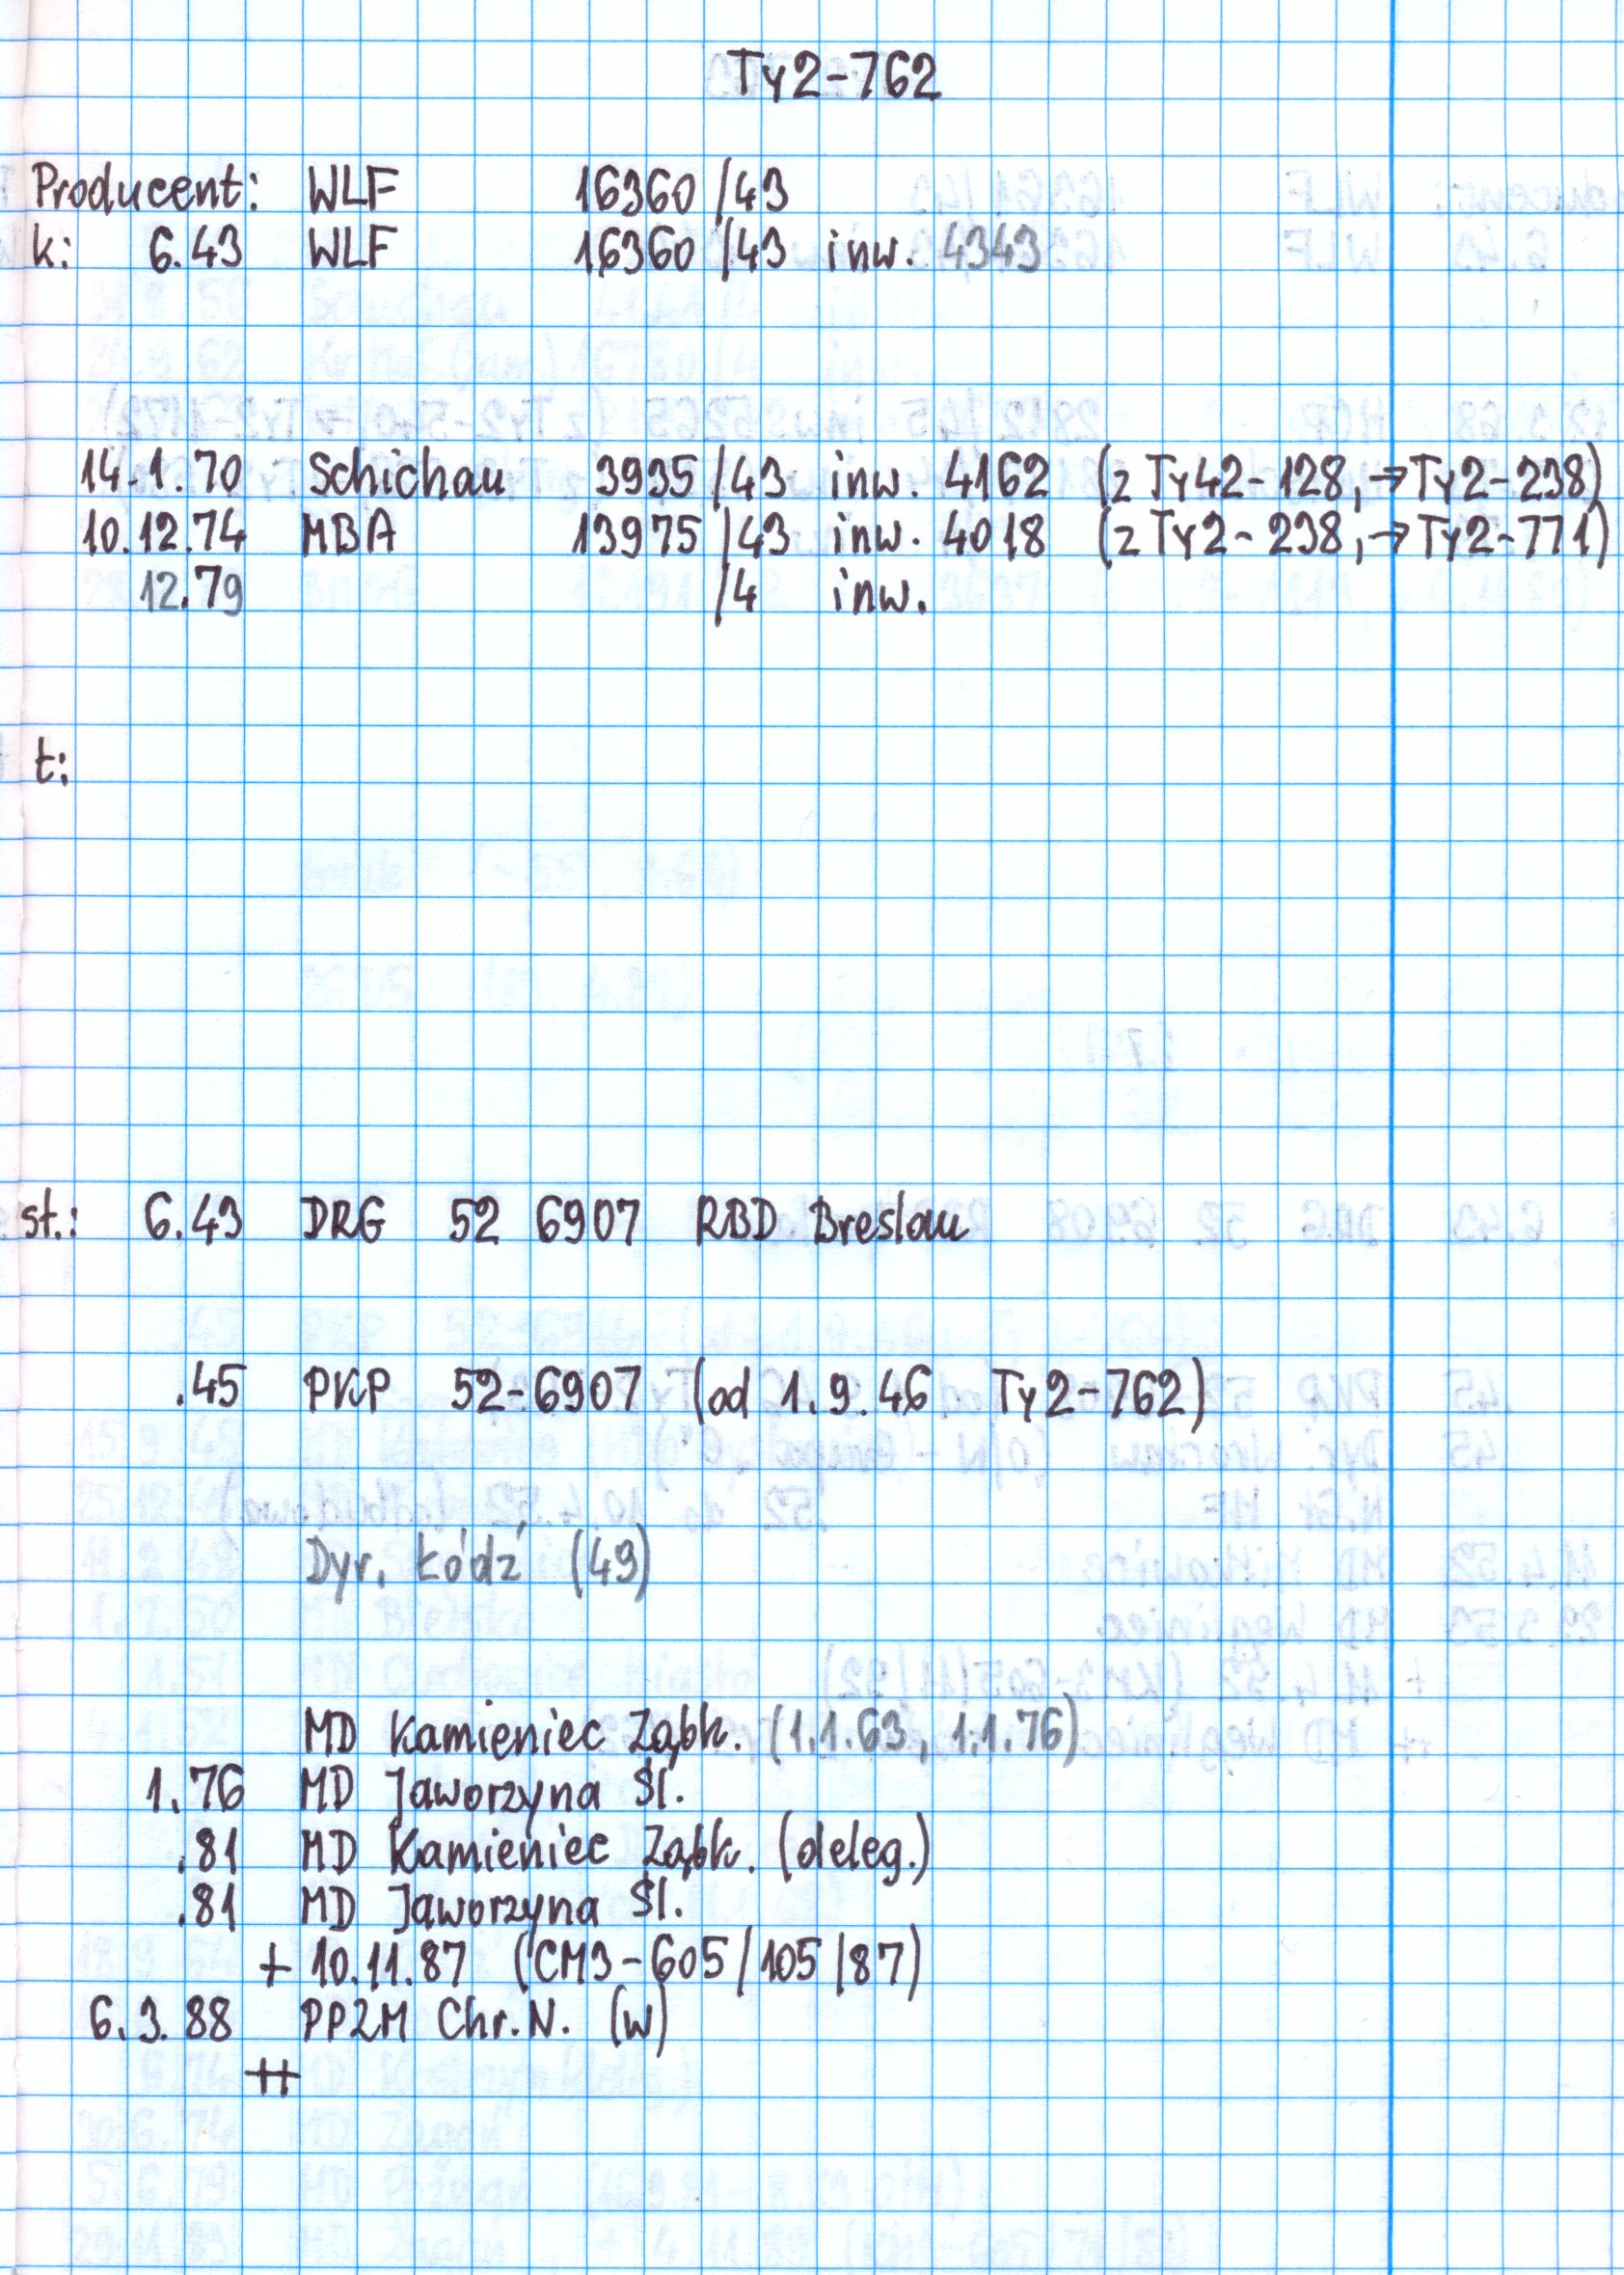 Ty2-762
Producent: WLF 16360/43
k: 6.43 WLF 16360/43 inw. 4343
14.1.70 Schichau 3935/43 inw. 4162 (z Ty42-128, →Ty2-238)
10.12.74 MBA 13975/43 inw. 4018 (z Ty2-238, →Ty2-771)
12.79 /4 inw.
t:
st.: 6.43 DRG 52 6907 RBD Breslau
.45 PKP 52-6907 (od 1.9.46 Ty2-762)
Dyr. Łódź (49)
MD Kamieniec Ząbk. (1.1.63, 1.1.76)
1.76 MD Jaworzyna Śl.
.81 MD Kamieniec Ząbk. (deleg.)
.81 MD Jaworzyna Śl.
+ 10.11.87 (CM3-605/105/87)
6.3.88 PPZM Chr.N. (w)
++